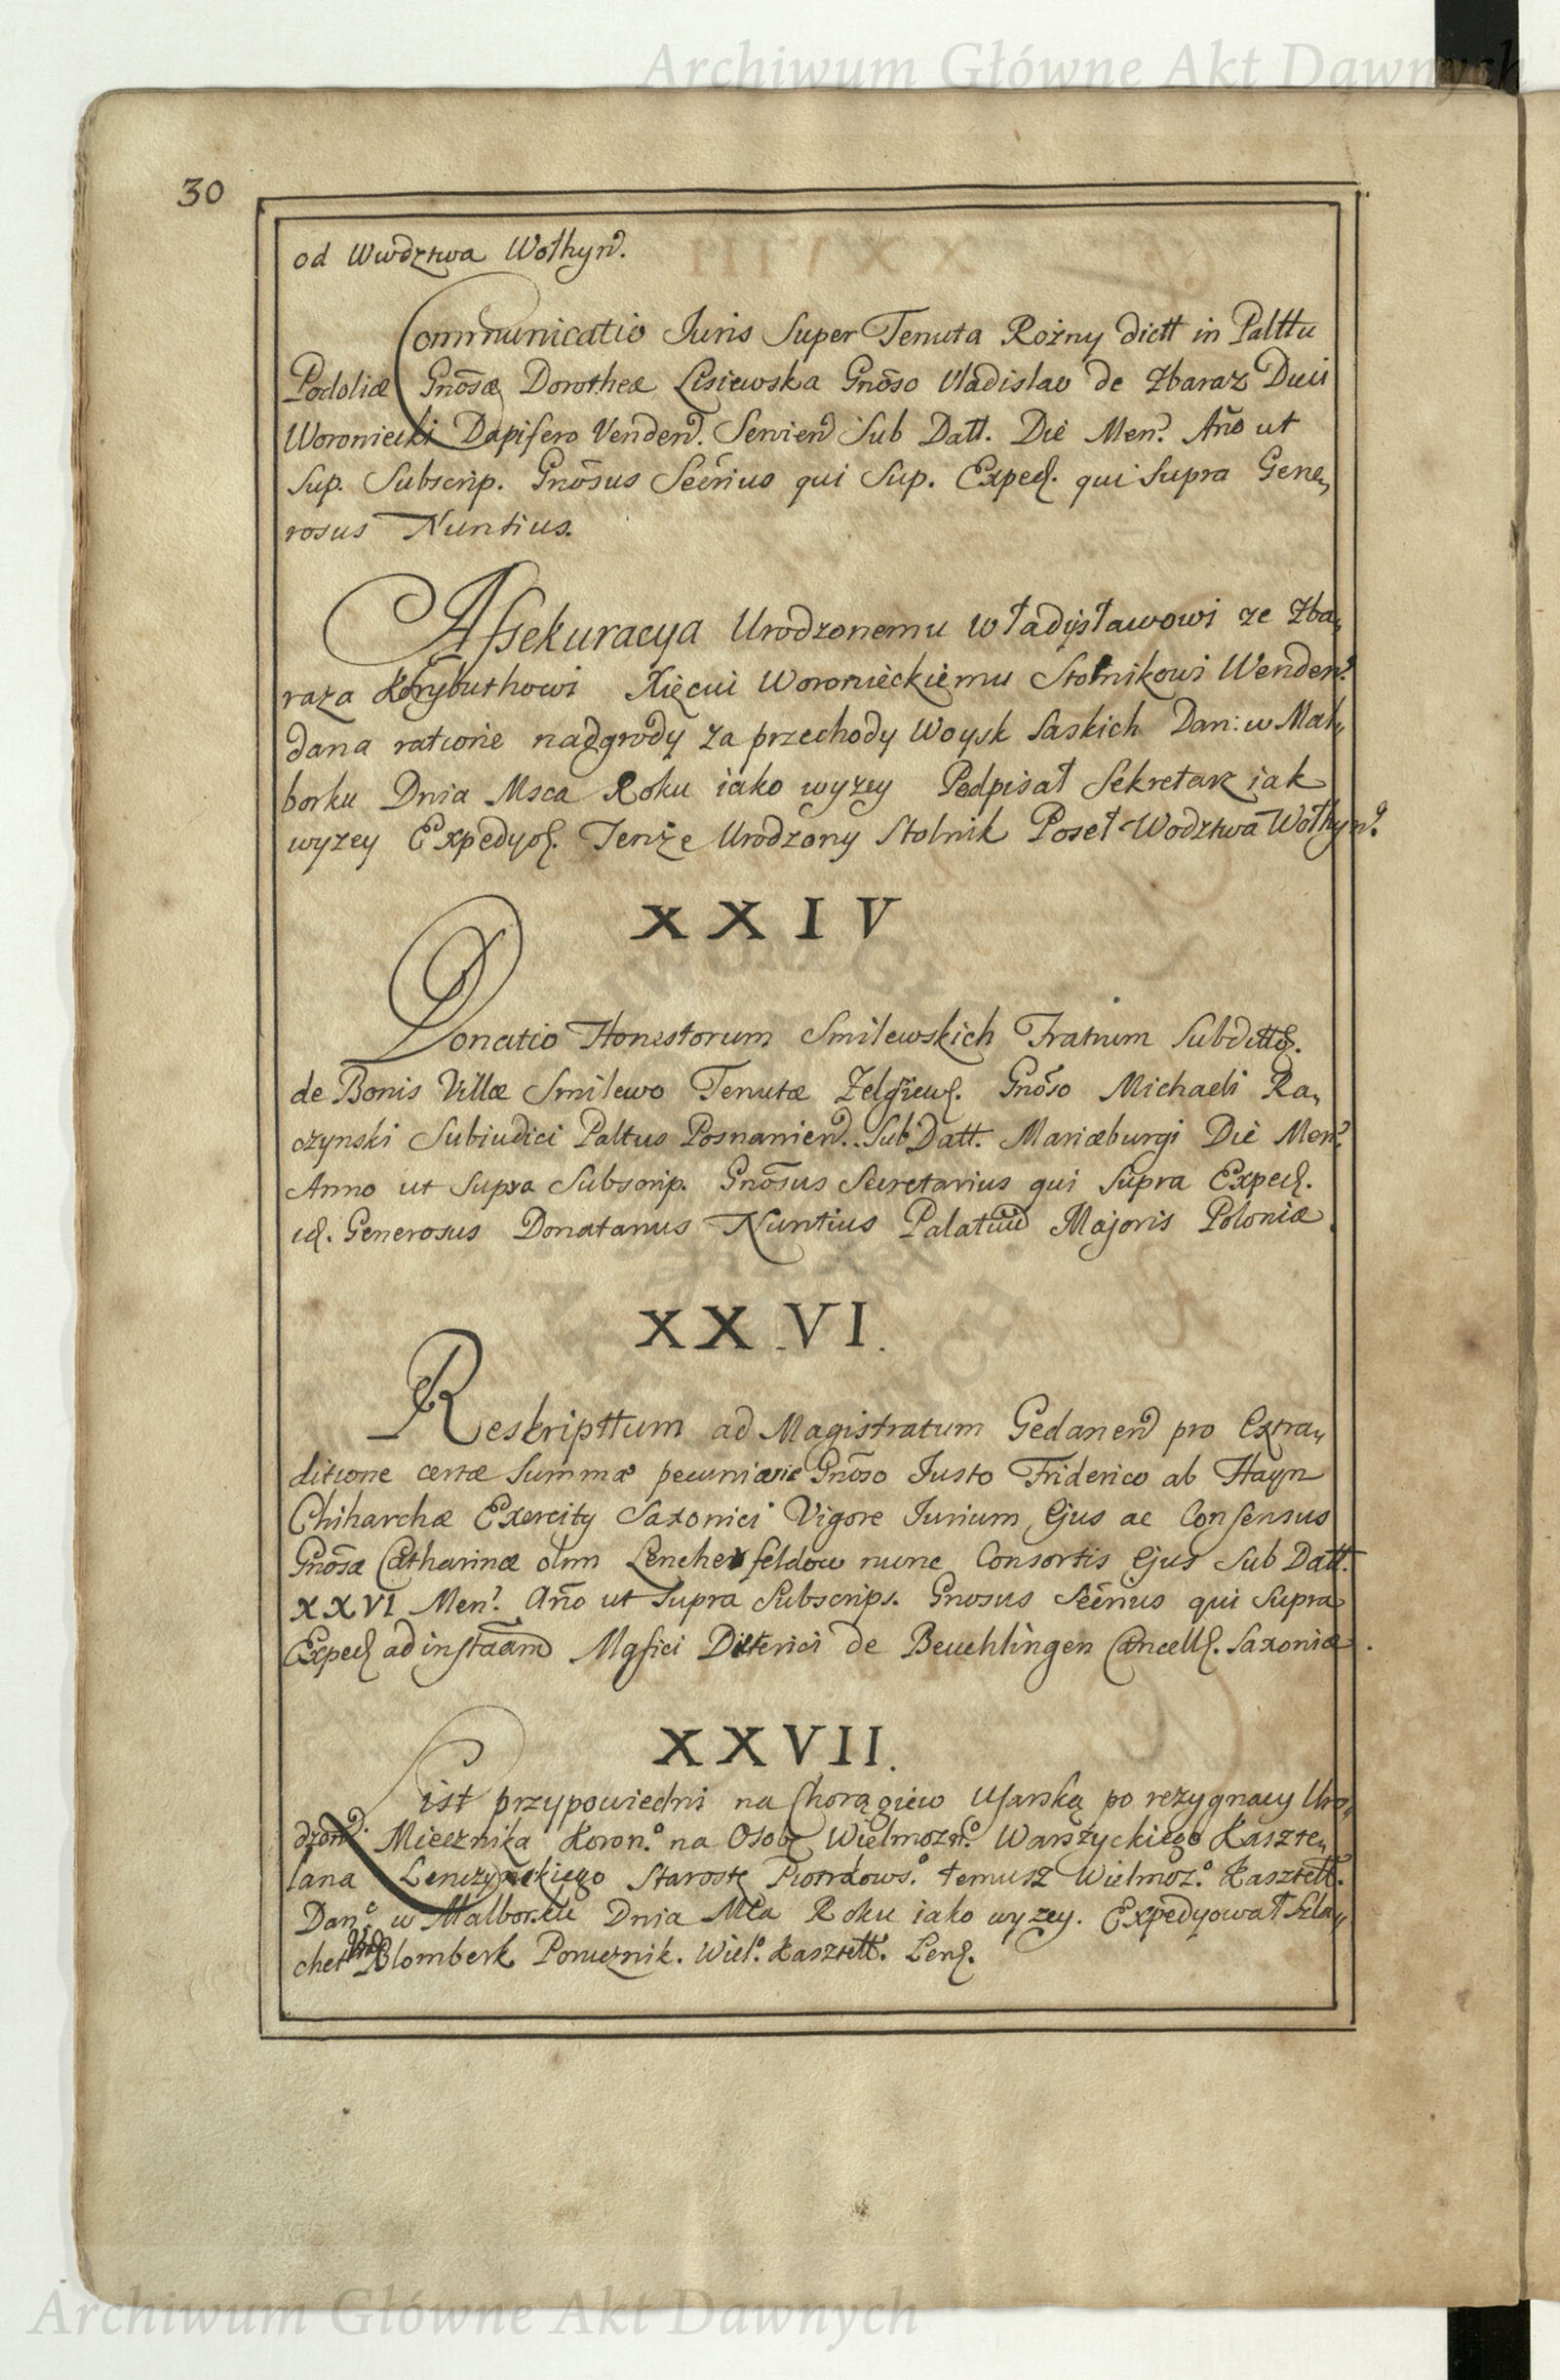 Archiwum Główne Akt Dawnych
30
od Wwdztwa Wołhyń.
Communicatio Iuris Super Tenuta Rożny dictt in Palttu
Podoliæ Gnōsæ Dorotheæ Lisiewska Gnōso Vladislao de Zbaraz Duci
Woroniecki Dapifero Venden. Servien Sub Datt. Die Men. Año ut
Sup. Subscrip. Gnōsus Secrīus qui Sup. Exped. qui Supra Gene„
rosus Nuntius.
Assekuracya Urodzonemu Władysławowi ze Zba„
raza Korybuthowi Xięciu Woronieckiemu Stolnikowi Wenden.
dana ratione nadgrody za przechody Woysk Saskich Dan: w Mal„
borku Dnia Msca Roku iako wyzey Podpisał Sekretarz iak
wyzey Expedyo. Tenże Urodzony Stolnik Poseł Wodztwa Wołhyń.
XXIV
Donatio Honestorum Smilewskich Fratrum Subditto.
de Bonis Villæ Smilewo Tenutæ Zelgniew. Gnōso Michaeli Ra„
czynski Subiudici Paltus Posnanien. Sub Datt. Mariæburgi Die Men.
Anno ut Supra Subscrip. Gnōsus Secretarius qui Supra Exped.
id. Generosus Donatarius Nuntius Palatuu Majoris Poloniæ
XXVI.
Reskripttum ad Magistratum Gedanen pro Extra„
ditione certæ Summæ pecuniariæ Gnōso Iusto Friderico ab Hayn
Chiliarchæ Exercity Saxonici Vigore Iurium Ejus ac Consensus
Gnōsæ Catharinæ olim Lencherfeldow nunc Consortis Ejus Sub Datt.
XXVI Men. Año ut Supra Subscrips. Gnosus Secrīus qui Supra
Exped ad instāam Mgfici Ditterici de Beuchlingen Cancell. Saxoniæ.
XXVII.
List przypowiedni na Chorągiew Usarską po rezygnacy Uro„
dzon. Miecznika Koron.o na Osobę Wielmozn.o Warszyckiego Kaszte„
lana Lenczyckiego Starostę Piotrkows.o temusz Wielmoz.o Kasztell.
Dan. w Malborku Dnia Mca Roku iako wyzey. Expedyował Szla„
chet Blomberk Porucznik. Wiel.o Kasztell. Len.
Archiwum Główne Akt Dawnych